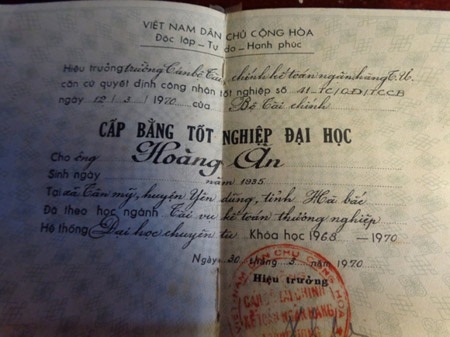 VIỆT NAM DÂN CHỦ CỘNG HÒA
Độc lập – Tự do – Hạnh phúc
Hiệu trưởng trường Cán bộ Tài chính kế toán ngân hàng T.Ư.
căn cứ quyết định công nhận tốt nghiệp số 41-TC/QĐ/TCCB
ngày 12/3/1970 của Bộ Tài chính
CẤP BẰNG TỐT NGHIỆP ĐẠI HỌC
Cho ông Hoàng Ấn
Sinh ngày năm 1935
Tại xã Tân mỹ, huyện Yên dũng, tỉnh Hà bắc
Đã theo học ngành Tài vụ kế toán thương nghiệp
Hệ thống Đại học chuyên tu Khóa học 1968 – 1970
Ngày 30 tháng 3 năm 1970
Hiệu trưởng
VIỆT NAM DÂN CHỦ CỘNG HÒA
TÀI CHÍNH
KẾ TOÁN NGÂN HÀNG